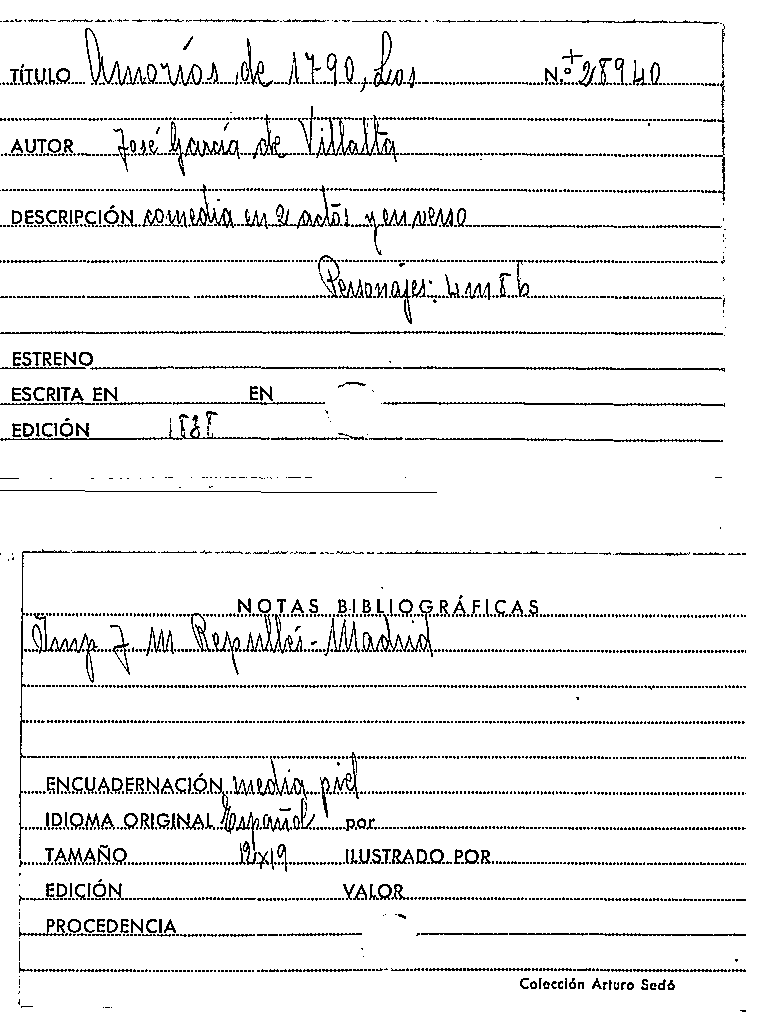 TÍTULO Amoríos de 1790, Los N.º +28940
AUTOR José García de Villalta
DESCRIPCIÓN comedia en 2 actos y en verso
Personajes: 4 m 8 h
ESTRENO
ESCRITA EN EN
EDICIÓN 1838
NOTAS BIBLIOGRÁFICAS
Imp J. M Repullés - Madrid
ENCUADERNACIÓN media piel
IDIOMA ORIGINAL Español por
TAMAÑO 12x19 ILUSTRADO POR
EDICIÓN VALOR
PROCEDENCIA
Colección Arturo Sedó